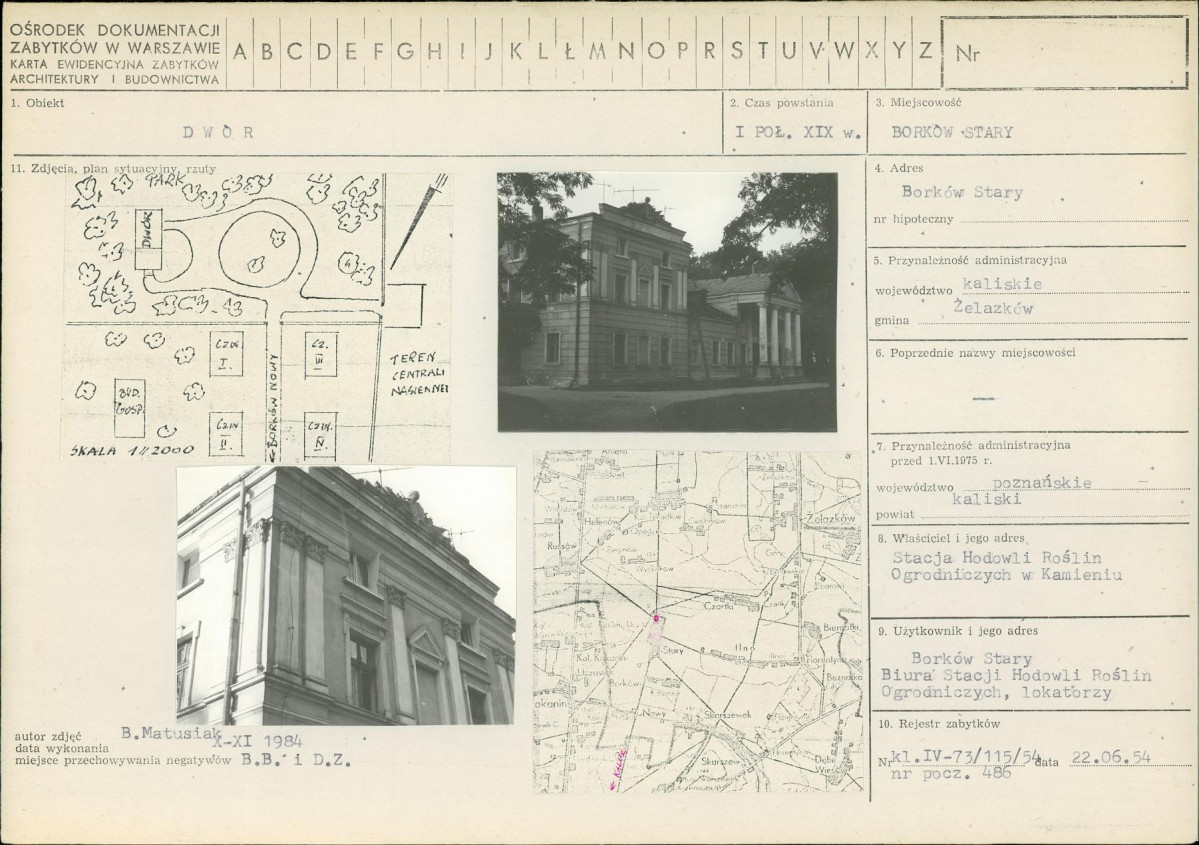 OŚRODEK DOKUMENTACJI
ZABYTKÓW W WARSZAWIE
KARTA EWIDENCYJNA ZABYTKÓW
ARCHITEKTURY I BUDOWNICTWA
A B C D E F G H I J K L Ł M N O P R S T U V W X Y Z
Nr
1. Obiekt
DWÓR
2. Czas powstania
I POŁ. XIX w.
3. Miejscowość
BORKÓW STARY
11. Zdjęcia, plan sytuacyjny, rzuty
PARK
DWÓR
CZW. I.
CZ. III
BUD. GOSP.
CZW. II.
CZW. IV.
BORKÓW NOWY
TEREN
CENTRALI
NASIENNEJ
SKALA 1:2000
4. Adres
Borków Stary
nr hipoteczny
5. Przynależność administracyjna
województwo kaliskie
gmina Żelazków
6. Poprzednie nazwy miejscowości
—
7. Przynależność administracyjna
przed 1.VI.1975 r.
województwo poznańskie
powiat kaliski
8. Właściciel i jego adres
Stacja Hodowli Roślin
Ogrodniczych w Kamieniu
9. Użytkownik i jego adres
Borków Stary
Biura Stacji Hodowli Roślin
Ogrodniczych, lokatorzy
10. Rejestr zabytków
Nr kl.IV-73/115/54 data 22.06.54
nr pocz. 486
Żelazków
Helenów
Russów
Czartki
Stary
Ilno
Borków
Nowy
Skarszewek
Skarszew
autor zdjęć B.Matusiak
data wykonania X-XI 1984
miejsce przechowywania negatywów B.B. i D.Z.